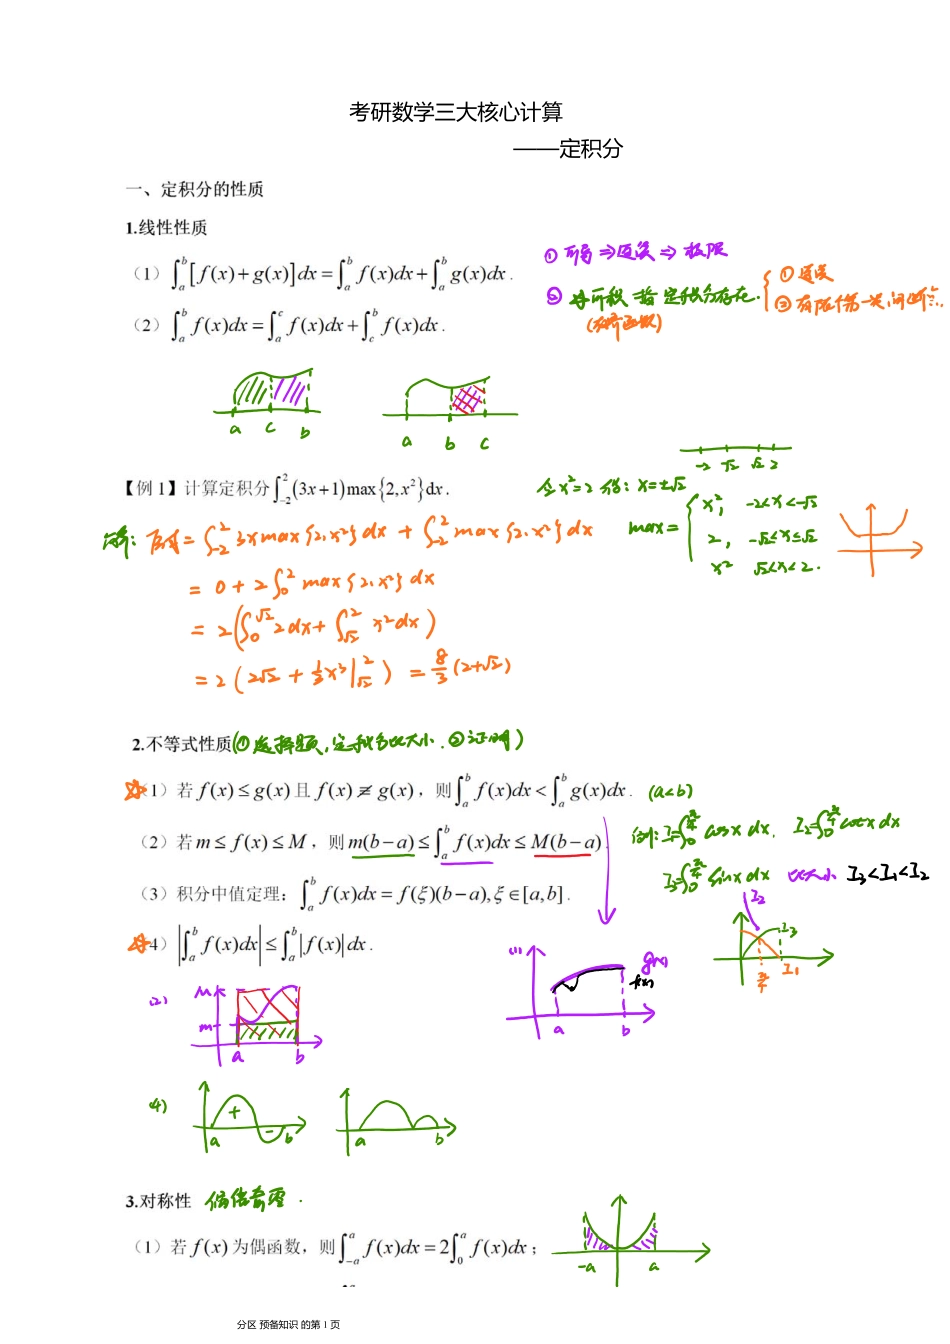 考研数学三大核心计算
——定积分
一、定积分的性质
1.线性性质
（1）∫_a^b [f(x)+g(x)]dx=∫_a^b f(x)dx+∫_a^b g(x)dx.
① 可导⇒连续⇒极限
② 可积 指 定积分存在. { ① 连续
② 有限个第一类间断点.
（2）∫_a^b f(x)dx=∫_a^c f(x)dx+∫_c^b f(x)dx.
a c b
a b c
-2 -√2 √2 2
【例 1】计算定积分∫_{-2}^{2}(3x+1)max{2,x²}dx.
令x²=2 得: x=±√2
max= { x², -2<x<-√2
2, -√2≤x≤√2
x² √2<x<2.
解: 原式=∫_{-2}^{2} 3x max{2,x²}dx + ∫_{-2}^{2} max{2,x²}dx
= 0+2∫_0^2 max{2,x²}dx
= 2(∫_0^{√2} 2dx+∫_{√2}^2 x²dx)
= 2(2√2+⅓x³|_{√2}^2) = 8/3(2+√2)
2.不等式性质(①选择题,定积分比大小.②证明)
（1）若 f(x)≤g(x)且 f(x)≢g(x)，则∫_a^b f(x)dx<∫_a^b g(x)dx. (a<b)
（2）若 m≤f(x)≤M，则 m(b−a)≤∫_a^b f(x)dx≤M(b−a)
例: I₁=∫_0^{π/4} cosx dx. I₂=∫_0^{π/4} cotx dx
I₃=∫_0^{π/4} sinx dx 比大小 I₃<I₁<I₂
（3）积分中值定理：∫_a^b f(x)dx=f(ξ)(b−a),ξ∈[a,b].
I₂
I₃
π/4 I₁
（4）|∫_a^b f(x)dx|≤∫_a^b |f(x)|dx.
(1) g(x)
f(x)
a b
(2) M
m
a b
(4) + −
a b
a b
3.对称性 偶倍奇零.
（1）若 f(x)为偶函数，则∫_{−a}^{a} f(x)dx=2∫_0^a f(x)dx；
-a a
分区 预备知识 的第 1 页